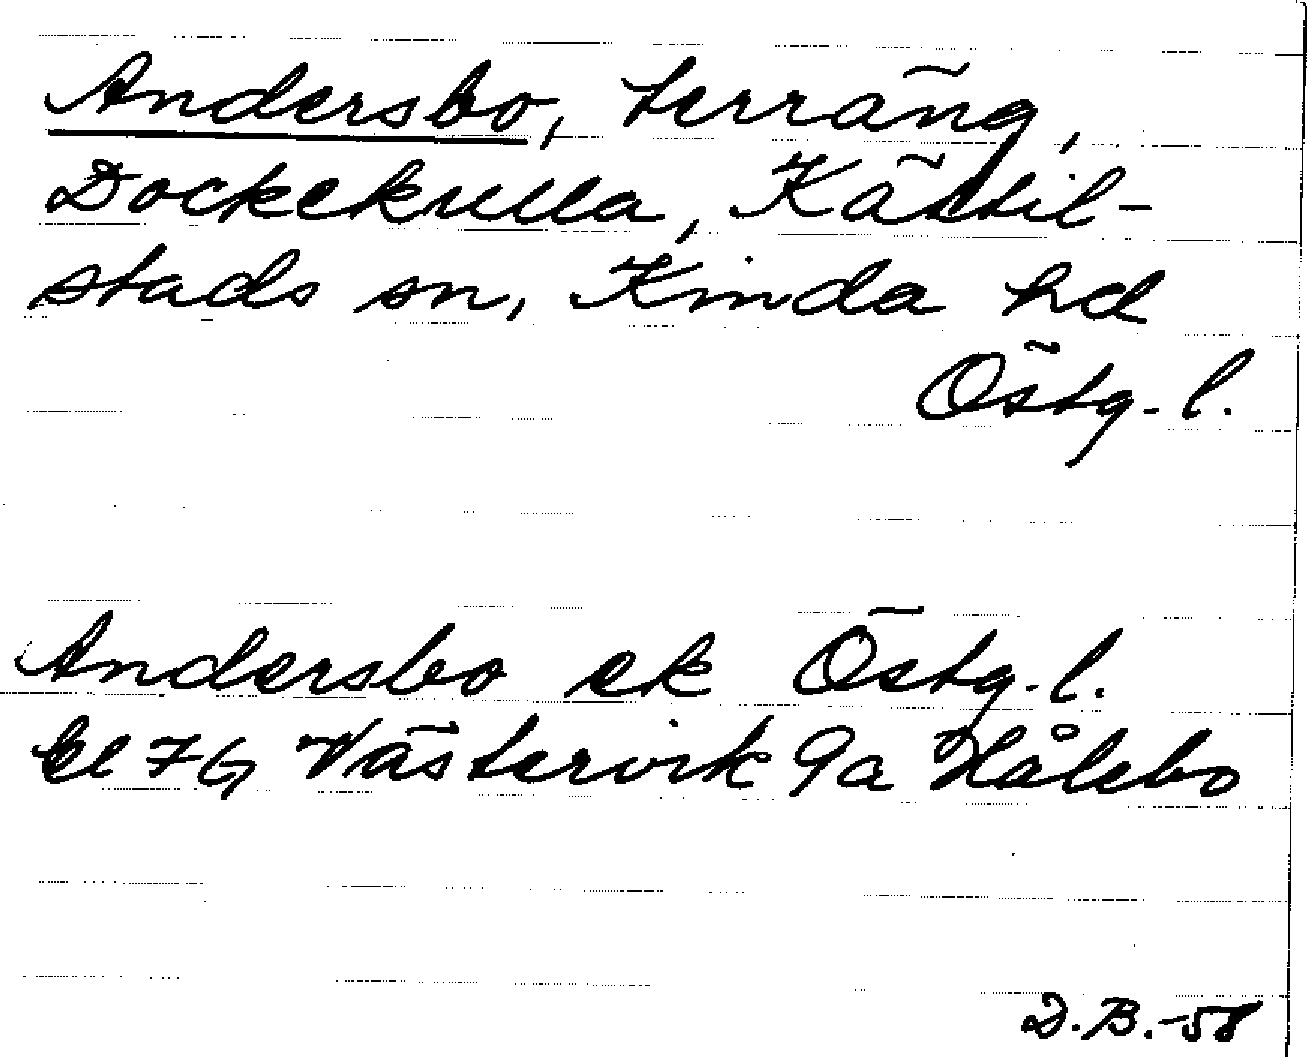 Andersbo, terräng,
Dockekulla, Kättil-
stads sn, Kinda hd
Östg.l.
Andersbo ek Östg.l.
bl 7G Västervik 9a Hålebo
D.B.-58